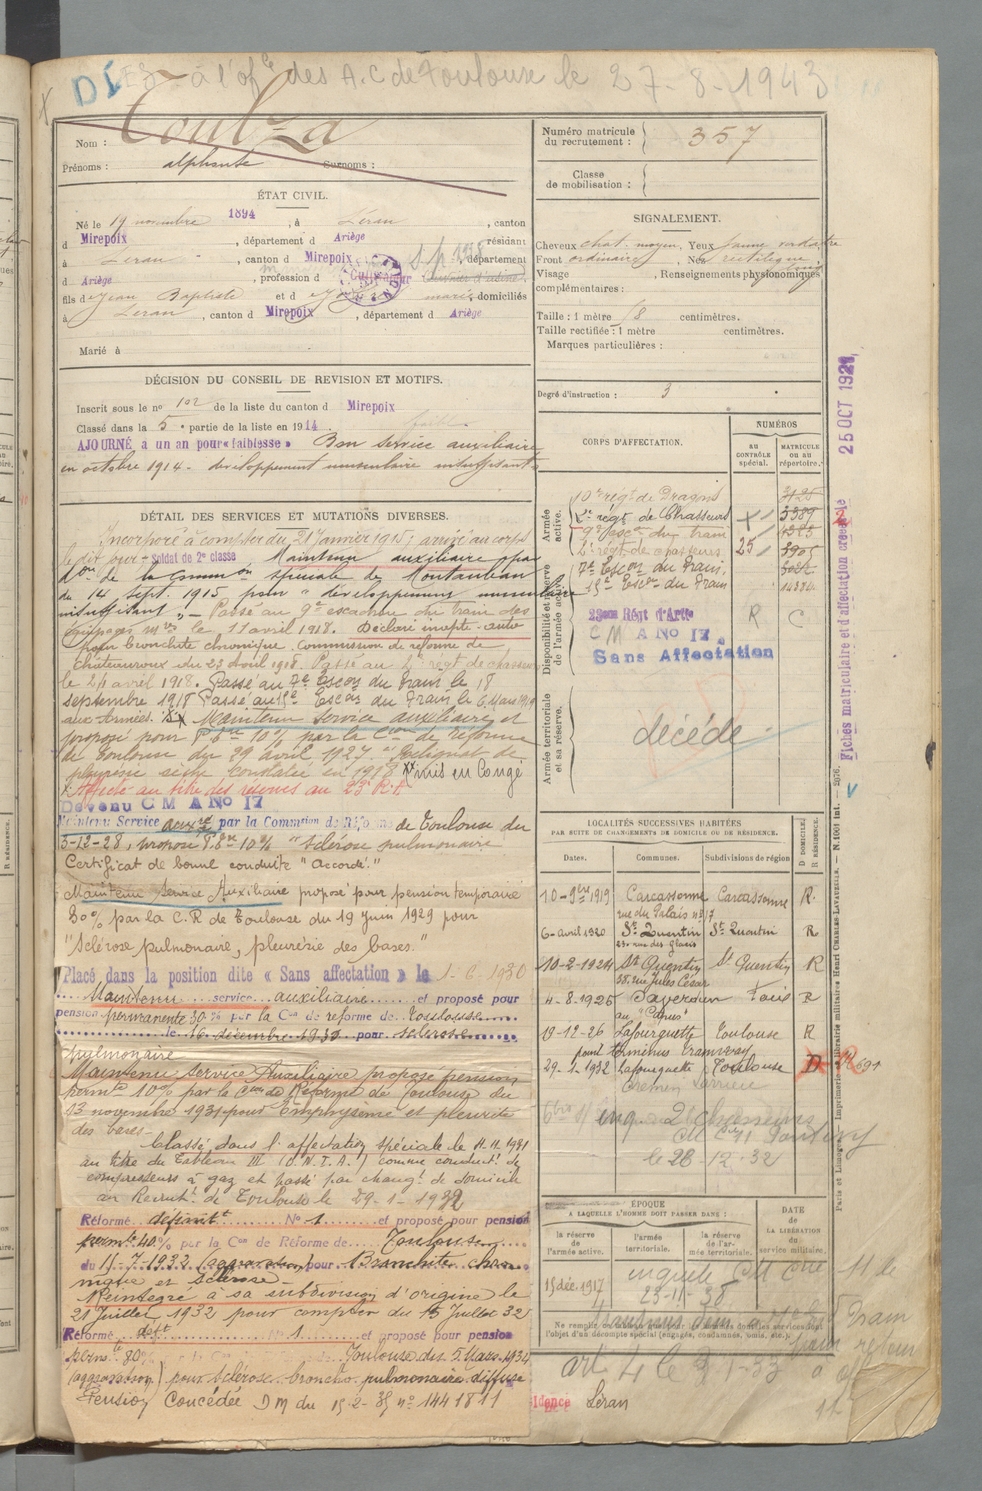 DI à l'off ce des A.C de Toulouse le 27-8-1943
Nom : Toulza
Prénoms : alphonse Surnoms :
ÉTAT CIVIL.
Né le 19 novembre 1894, à Léran, canton
d Mirepoix, département d Ariège résidant
à Léran, canton d Mirepoix, département
d Ariège, profession d Cultivateur
fils de Jean Baptiste et d mariés domiciliés
à Léran, canton d Mirepoix, département d Ariège
Marié à
DÉCISION DU CONSEIL DE REVISION ET MOTIFS.
Inscrit sous le no 102 de la liste du canton d Mirepoix
Classé dans la 5e partie de la liste en 1914.
AJOURNÉ a un an pour «faiblesse» Bon service auxiliaire
en octobre 1914. développement musculaire insuffisant
DÉTAIL DES SERVICES ET MUTATIONS DIVERSES.
Incorporé à compter du 21 janvier 1915; arrivé au corps
le dit jour - Soldat de 2e classe. Maintenu auxiliaire par
de la comm on spéciale de Montauban
du 14 sept. 1915 pour "développement musculaire
insuffisant". Passé au 9e escadron du train des
équipages mres le 11 avril 1918. Déclaré inapte auto
pour bronchite chronique commission de réforme de
Châteauroux du 23 avril 1918. Passé au 2e régt de chasseurs
le 24 avril 1918. Passé au 7e Escon du Train le 18
septembre 1918 Passé au 15e Escon du Train le 6 Mars 1919
aux Armées. XX Maintenu service auxiliaire et
proposé pour P. 10% par la Con de réforme
de Toulouse du 29 avril 1927 "reliquat de
pleurésie sèche constatée en 1918 XX mis en Congé
X Affecté au titre des réserves au 23e R.A
Devenu C M A No 17
Maintenu Service auxre par la Common de Réforme de Toulouse du
5-12-28, propose P. 10% "sclérose pulmonaire
Certificat de bonne conduite "Accordé."
Maintenu Service Auxiliaire proposé pour pension temporaire
30% par la C.R de Toulouse du 19 juin 1929 pour
"Sclérose pulmonaire, pleurésie des bases."
Placé dans la position dite « Sans affectation » le 1-6-1930
Maintenu service auxiliaire et proposé pour
pension permanente 30% par la Con de réforme de Toulouse
le 16 décembre 1930 pour sclérose
pulmonaire
Maintenu Service Auxiliaire proposé pension
permte 10% par la Con de Réforme de Toulouse du
13 novembre 1931 pour Emphysème et pleurite
des bases.
Classé dans l'affectation spéciale le 11.11.1931
au titre du Tableau III (O.N.I.A.) comme conduct. de
compresseurs à gaz et passé par changt de domicile
au Recrutt de Toulouse le 29-1-1932
Réformé définitt No 1 et proposé pour pension
permte 40% par la Con de Réforme de Toulouse
du 15-7-1932 (aggravation) pour Bronchite chro-
nique et sclérose
Réintégré à sa subdivision d'origine le
21 Juillet 1932 pour compter du 15 Juillet 32
Réformé deft No 1 et proposé pour pension
permte 80% Toulouse du 5 Mars 1934
(aggravation) pour sclérose broncho pulmonaire diffuse
Pension Concédée D M du 15-2-35 no 1441811
Numéro matricule du recrutement : 357
Classe de mobilisation :
SIGNALEMENT.
Cheveux chat. moyen, Yeux jaune verdâtre
Front ordinaire, Nez rectiligne
Visage long, Renseignements physionomiques
complémentaires :
Taille : 1 mètre 78 centimètres.
Taille rectifiée : 1 mètre centimètres.
Marques particulières :
Degré d'instruction : 3
CORPS D'AFFECTATION.
NUMÉROS
AU CONTRÔLE spécial.
MATRICULE OU AU RÉPERTOIRE.
Armée active.
10e régt de Dragons 3125
2e régt de Chasseurs 3389
9e escon du train
2e régt de chasseurs 25
Disponibilité et réserve de l'armée active
7e Escon du Train
15e Escon du Train
23eme Régt d'Artie R C
C M A No 17
Sans Affectation
Armée territoriale et sa réserve.
décédé
Fiches matriculaire et d'affectation créées le 25 OCT 1921
LOCALITÉS SUCCESSIVES HABITÉES
PAR SUITE DE CHANGEMENTS DE DOMICILE OU DE RÉSIDENCE.
Dates. Communes. Subdivisions de région D DOMICILE R RÉSIDENCE.
10-9bre 1919 Carcassonne Carcassonne R
rue du Palais no 17
6-avril 1920 St Quentin St Quentin R
10-2-1924 St Quentin St Quentin R
38, rue Jules César
4-8-1925 Paris R
19-12-26 Lafourguette Toulouse R
pont terminus tramway
29-1-1932 Lafourguette Toulouse D
le 28-12-32
ÉPOQUE
A LAQUELLE L'HOMME DOIT PASSER DANS :
la réserve de l'armée active.
l'armée territoriale.
la réserve de l'armée territoriale.
DATE de LA LIBÉRATION du service militaire.
15 déc. 1917
23-11-38
Paris et Limoges. — Imprimerie et librairie militaires Henri CHARLES-LAVAUZELLE.
art 4 le 3-1-33
idence Léran